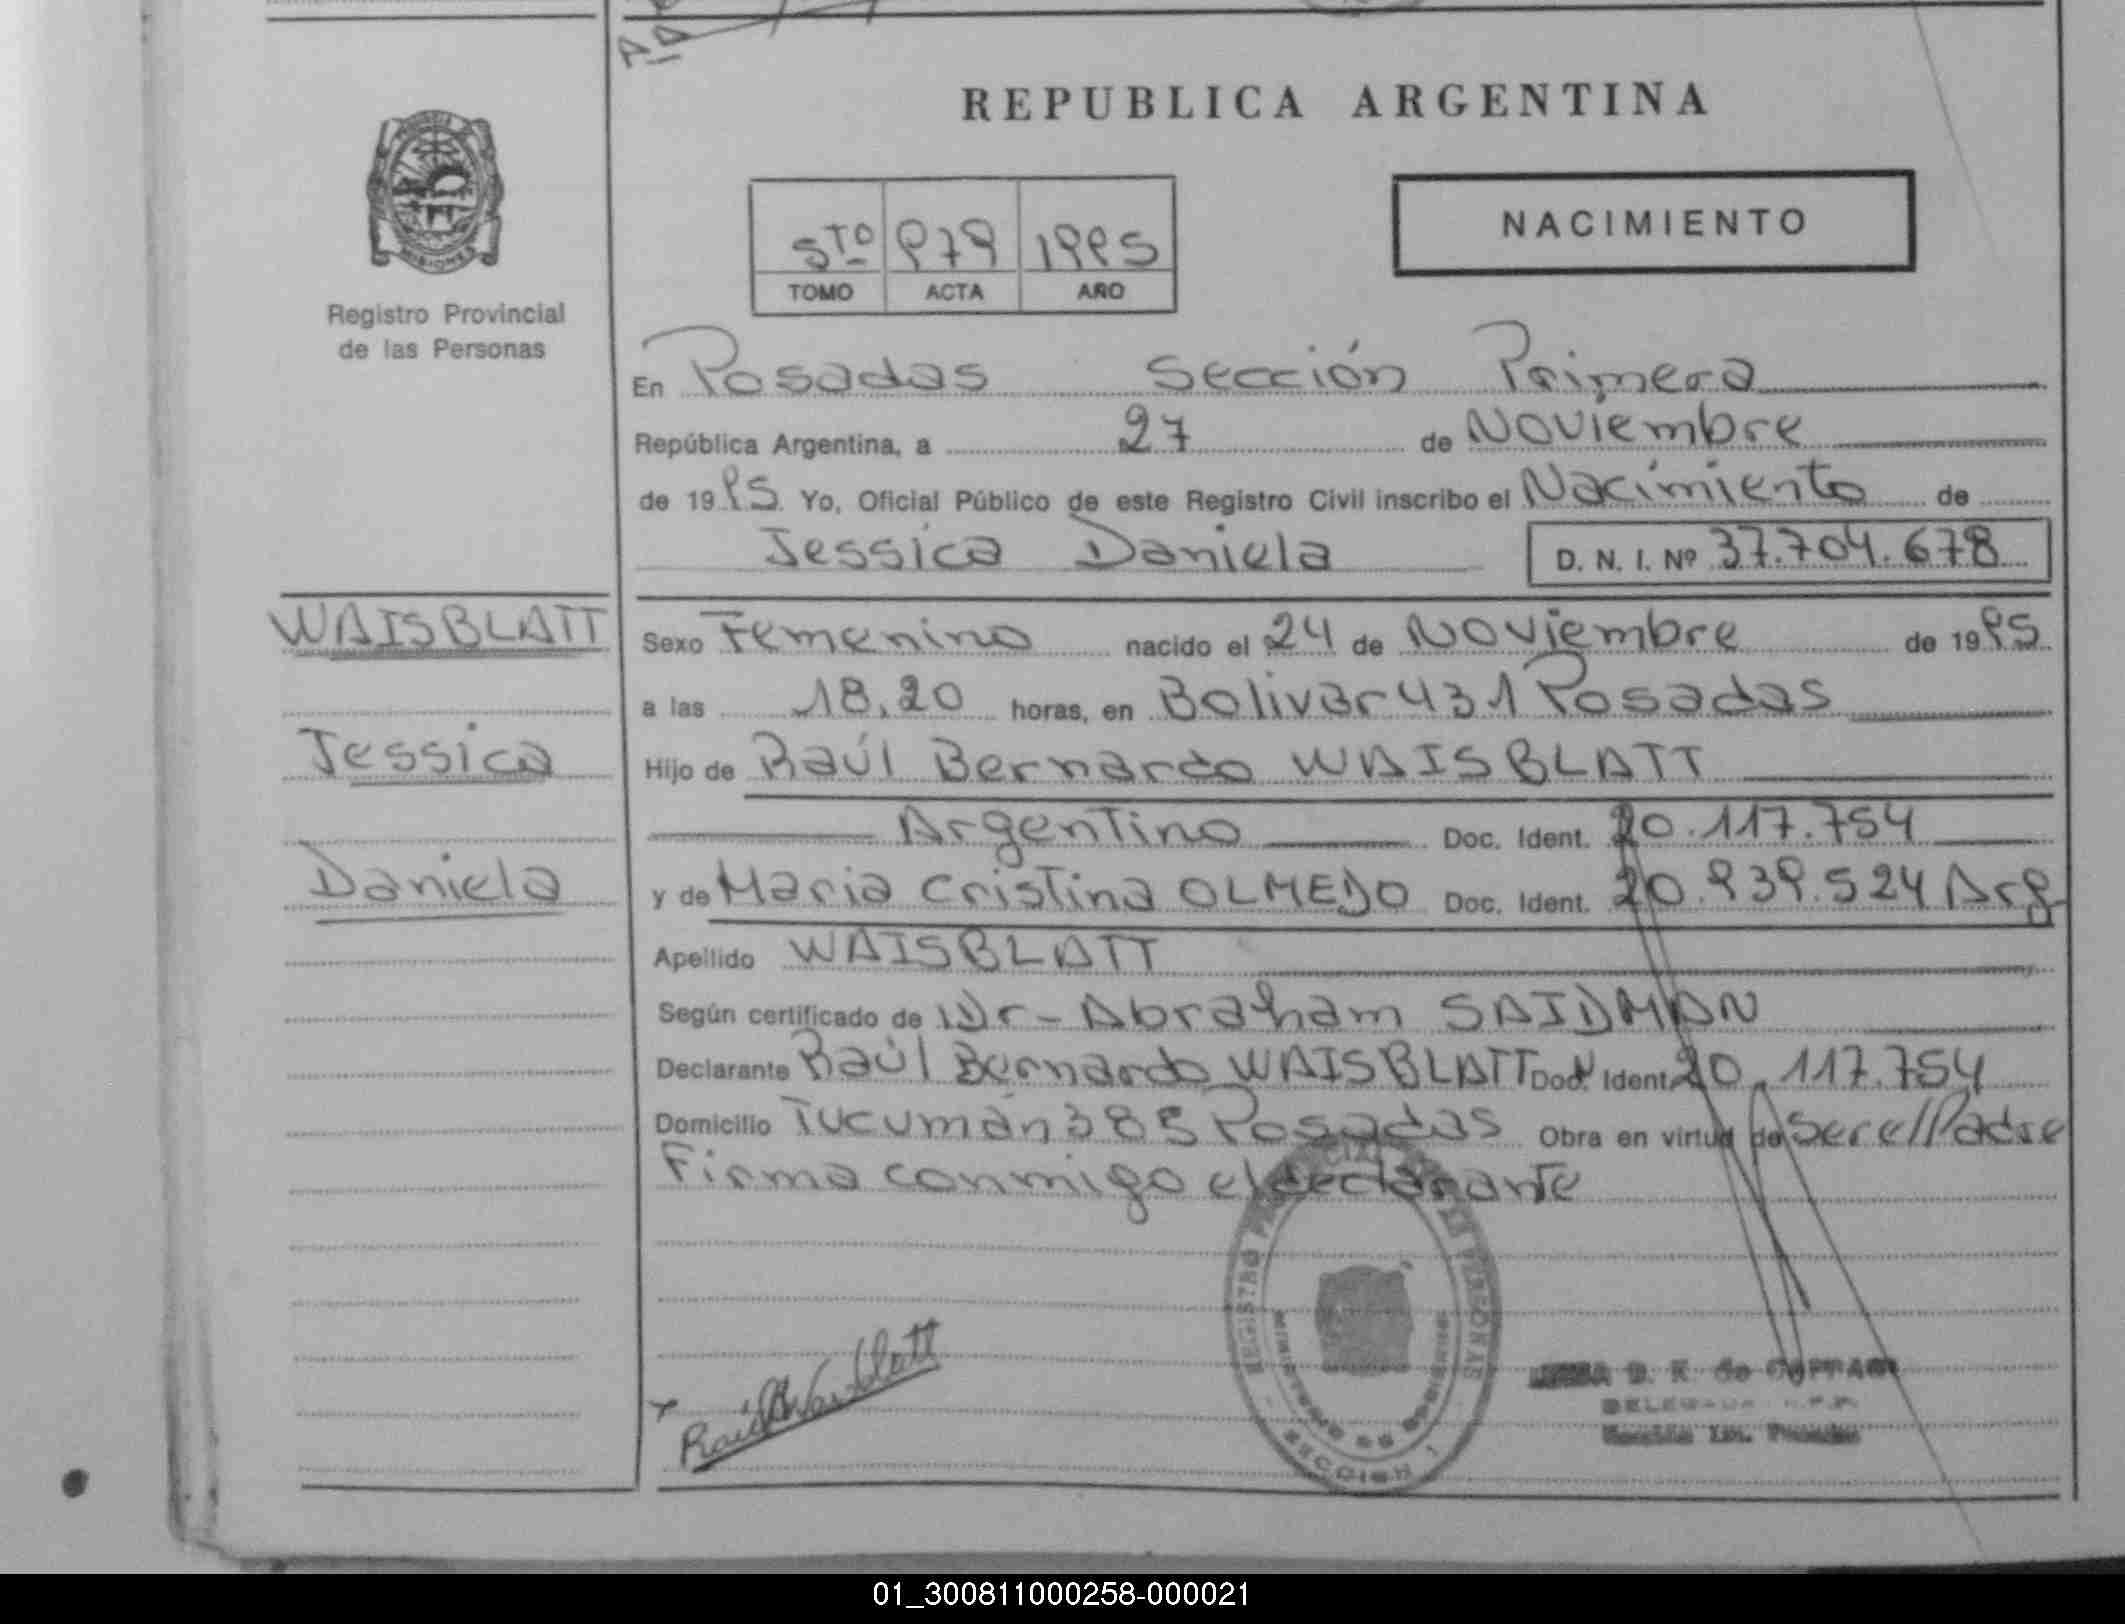 REPUBLICA ARGENTINA
MISIONES
Registro Provincial
de las Personas
5TO 979 1995
TOMO ACTA AÑO
NACIMIENTO
En Posadas Sección Primera
República Argentina, a 27 de Noviembre
de 1995. Yo, Oficial Público de este Registro Civil inscribo el Nacimiento de
Jessica Daniela D. N. I. Nº 37.704.678
WAISBLATT
Jessica
Daniela
Sexo Femenino nacido el 24 de Noviembre de 1995.
a las 18,20 horas, en Bolivar 431 Posadas
Hijo de Raúl Bernardo WAISBLATT
Argentino Doc. Ident. 20.117.754
y de Maria Cristina OLMEDO Doc. Ident. 20.939.524 Arg
Apellido WAISBLATT
Según certificado de Dr- Abraham SAIDMAN
Declarante Raúl Bernardo WAISBLATT Doc. Ident. 20.117.754
Domicilio Tucumán 385 Posadas Obra en virtud de Ser el Padre
Firma conmigo el declarante
REGISTRO PROVINCIAL DE LAS PERSONAS
MINISTERIO DE GOBIERNO
SECCION 1
Raúl B Waisblatt
D. K. de
01_300811000258-000021